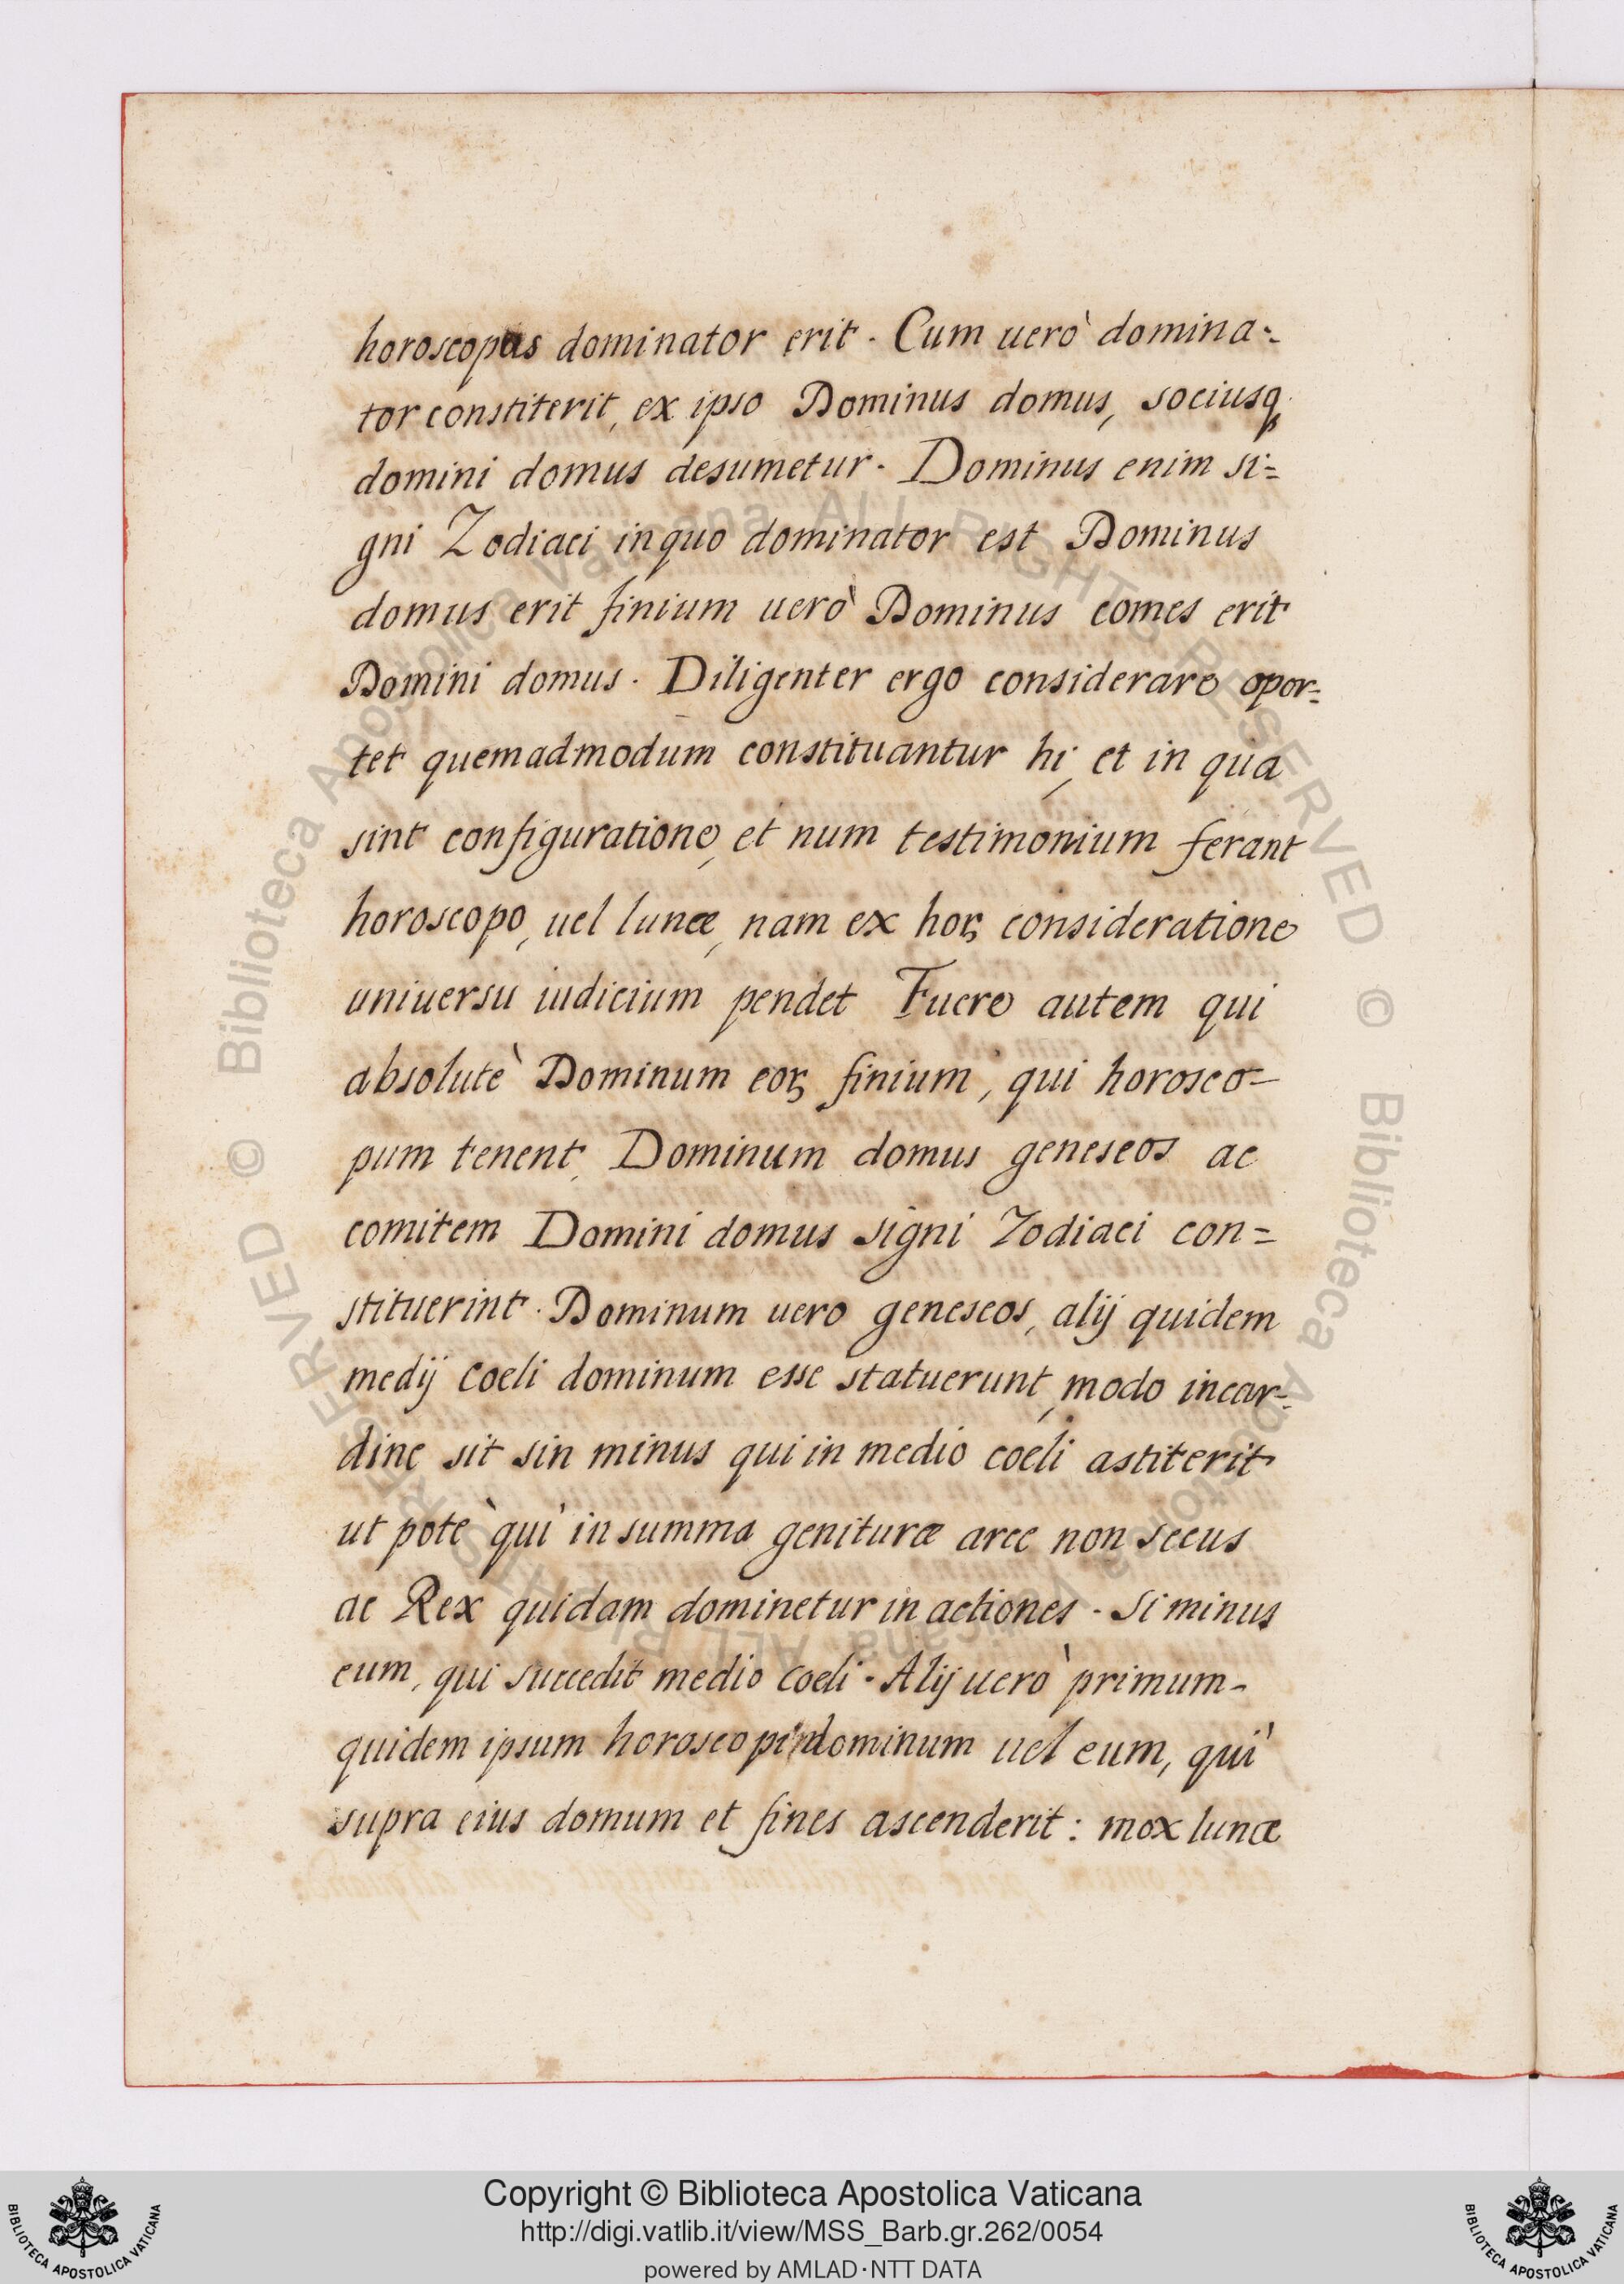 horoscopus dominator erit. Cum uerò domina-
tor constiterit, ex ipso Dominus domus, sociusq
domini domus desumetur. Dominus enim si=
gni Zodiaci in quo dominator est Dominus
domus erit finium uerò Dominus comes erit
Domini domus. Diligenter ergo considerare opor=
tet quemadmodum constituantur hi, et in qua
sint configuratione, et num testimonium ferant
horoscopo, uel lunæ, nam ex hoꝝ consideratione
uniuersu iudicium pendet Fuere autem qui
absolutè Dominum eoꝝ finium, qui horosco-
pum tenent, Dominum domus geneseos ac
comitem Domini domus signi Zodiaci con=
stituerint. Dominum uero geneseos, alij quidem
medij coeli dominum esse statuerunt, modo incar-
dine sit sin minus qui in medio coeli astiterit
ut potè qui in summa genituræ arce non secus
ac Rex quidam dominetur in actiones. Si minus
eum, qui succedit medio coeli. Alij uerò primum-
quidem ipsum horoscopi dominum uel eum, qui
supra eius domum et fines ascenderit: mox lunæ
© Biblioteca Apostolica Vaticana ALL RIGHTS RESERVED
© Biblioteca Apostolica Vaticana ALL RIGHTS RESERVED
Copyright © Biblioteca Apostolica Vaticana
http://digi.vatlib.it/view/MSS_Barb.gr.262/0054
powered by AMLAD·NTT DATA
BIBLIOTECA APOSTOLICA VATICANA
BIBLIOTECA APOSTOLICA VATICANA